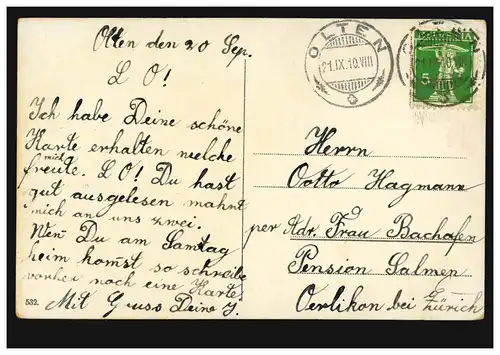 Olten den 20 Sep.
L O!
Ich habe Deine schöne
Karte erhalten welche
mich
freute. LO! Du hast
gut ausgelesen mahnt
mich an uns zwei.
Wen Du am Samtag
heim komst so schreibe
vorher noch eine Karte
Mit Gruss Deine J.
532.
OLTEN
21.IX.10.VIII
HELVETIA
5
Herrn
Ootto Hagmann
per Adr. Frau Bachofen
Pension Salmen
Oerlikon bei Zürich